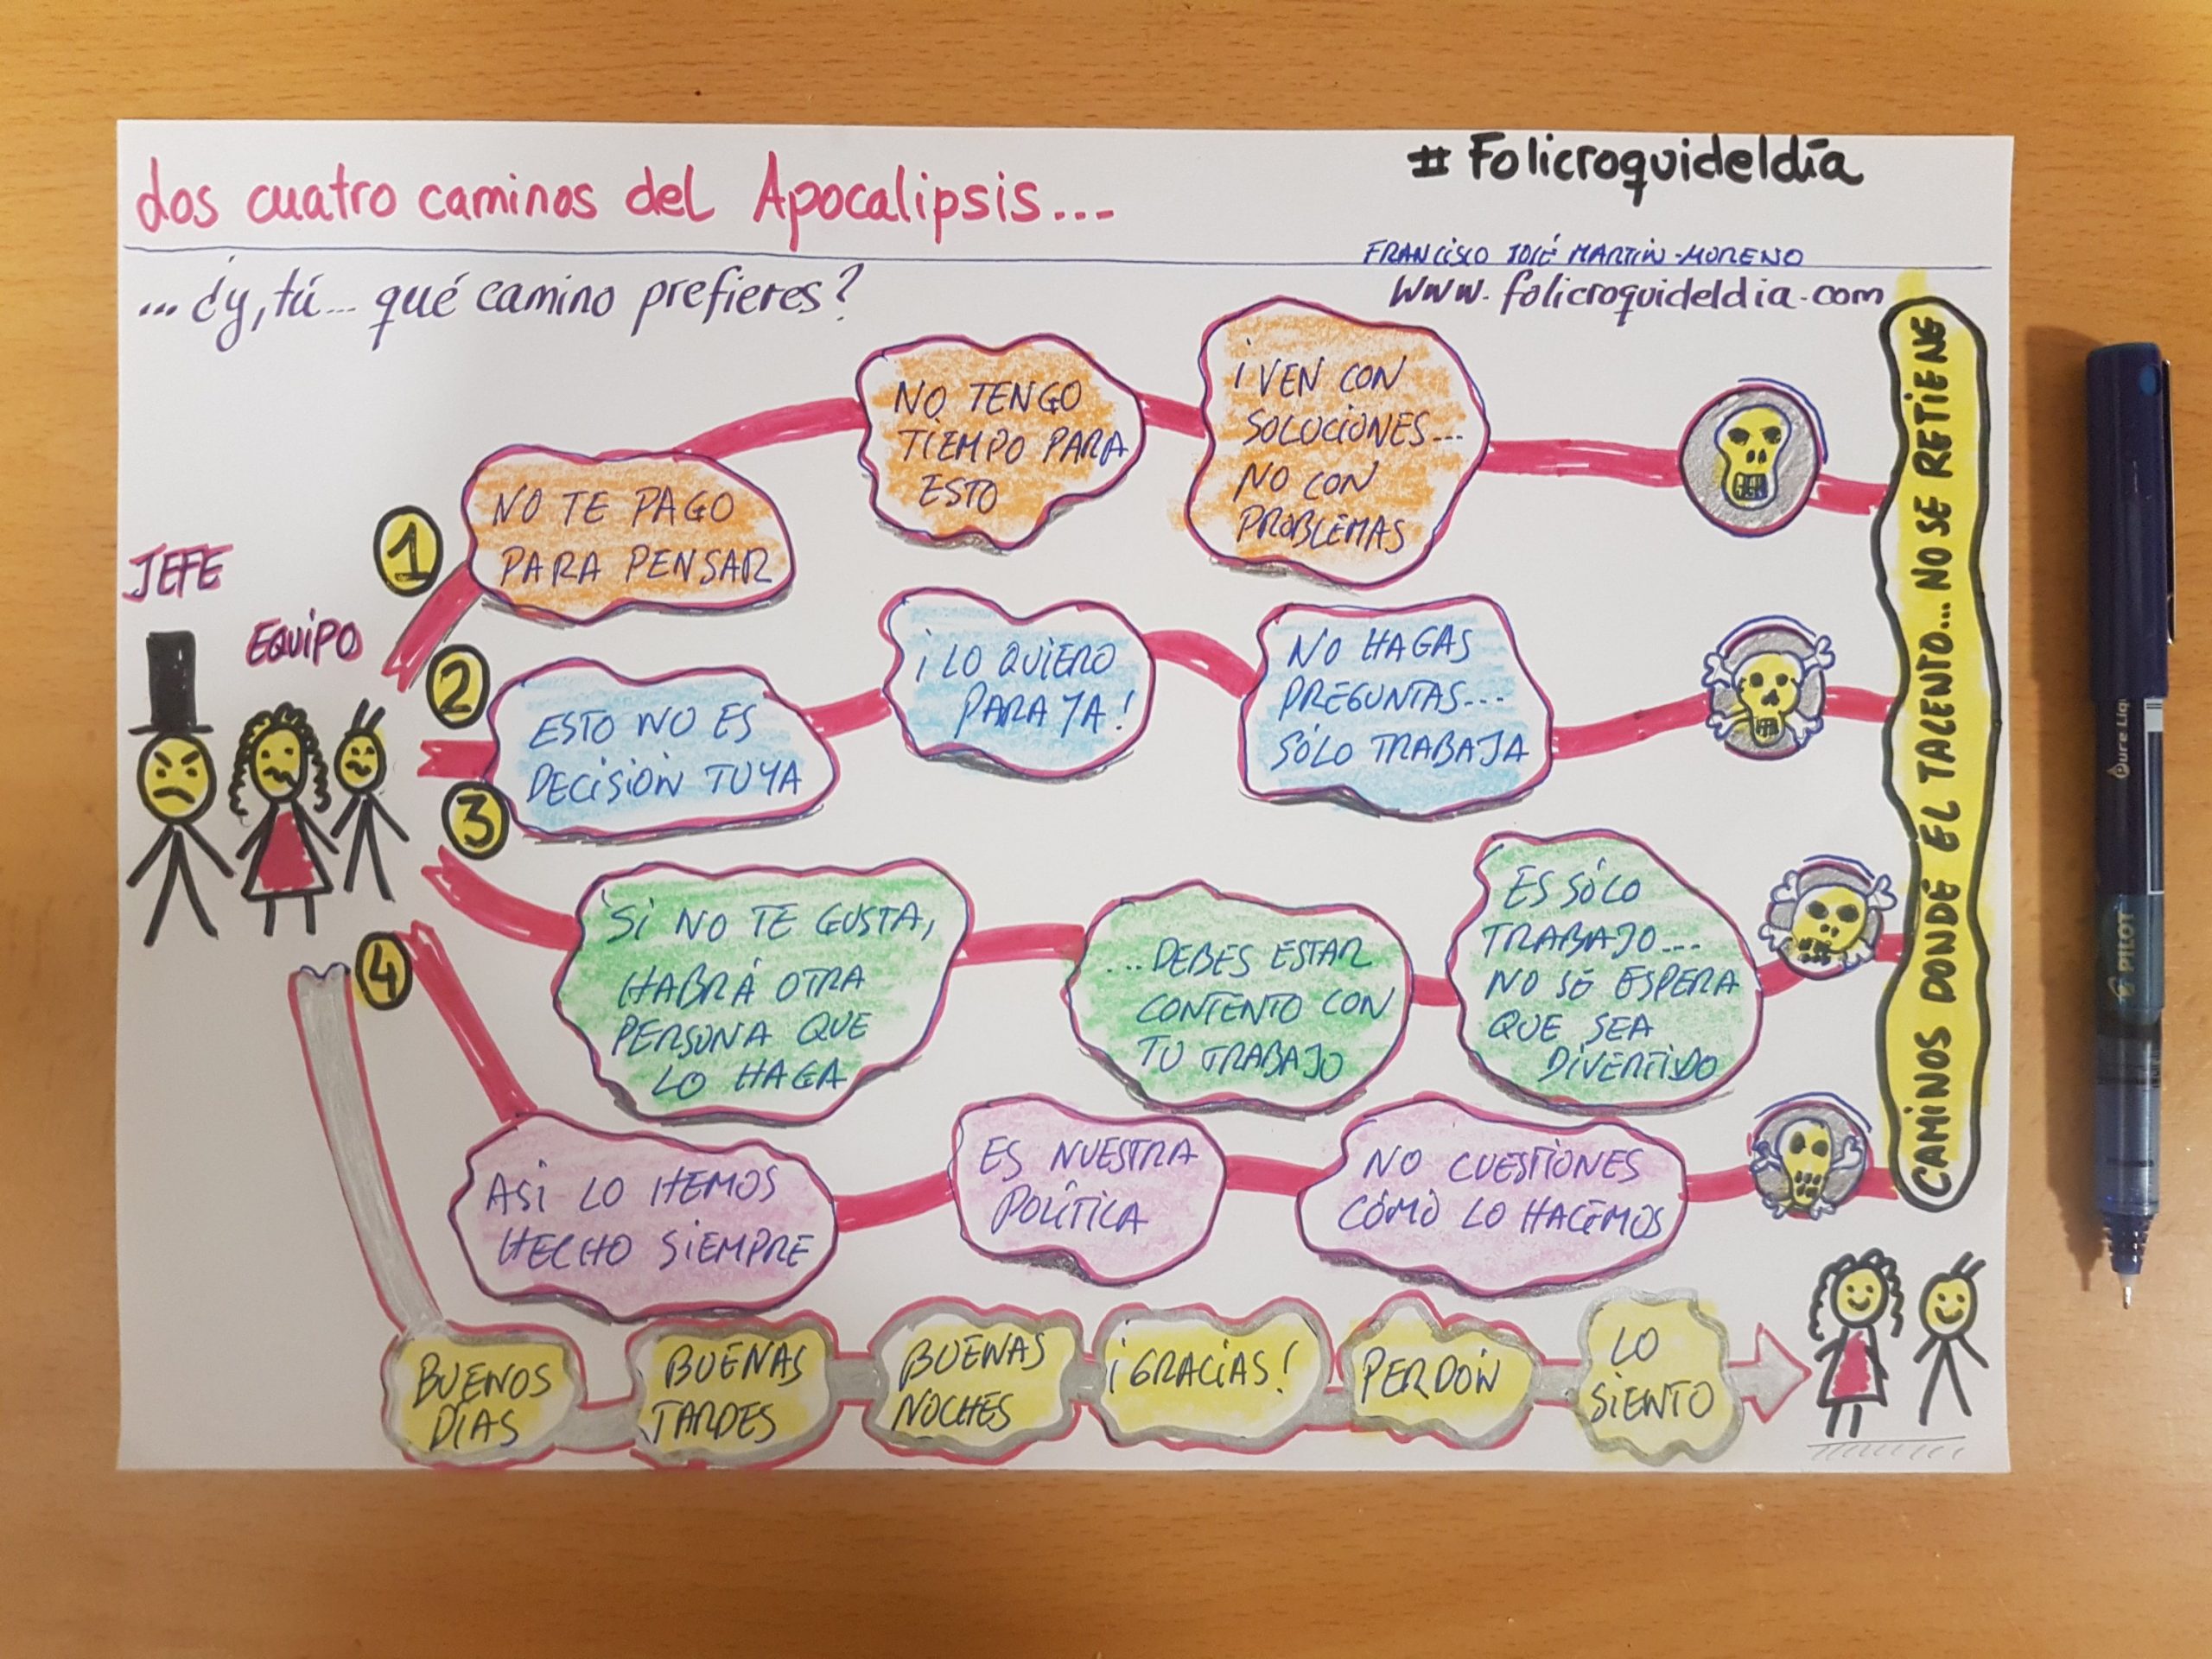 dos cuatro caminos del Apocalipsis...
# Folicroquideldía
FRANCISCO JOSÉ MARTIN-MORENO
www.folicroquideldia.com
... ¿y, tú... qué camino prefieres?
JEFE
EQUIPO
1
NO TE PAGO
PARA PENSAR
NO TENGO
TIEMPO PARA
ESTO
¡VEN CON
SOLUCIONES...
NO CON
PROBLEMAS
2
ESTO NO ES
DECISIÓN TUYA
¡LO QUIERO
PARA YA!
NO HAGAS
PREGUNTAS...
SÓLO TRABAJA
3
SI NO TE GUSTA,
HABRÁ OTRA
PERSONA QUE
LO HAGA
...DEBES ESTAR
CONTENTO CON
TU TRABAJO
ES SÓLO
TRABAJO...
NO SE ESPERA
QUE SEA
DIVERTIDO
4
ASI LO HEMOS
HECHO SIEMPRE
ES NUESTRA
POLÍTICA
NO CUESTIONES
CÓMO LO HACEMOS
BUENOS
DÍAS
BUENAS
TARDES
BUENAS
NOCHES
¡GRACIAS!
PERDÓN
LO
SIENTO
CAMINOS DONDE EL TALENTO... NO SE RETIENE
Pure Liq
PILOT